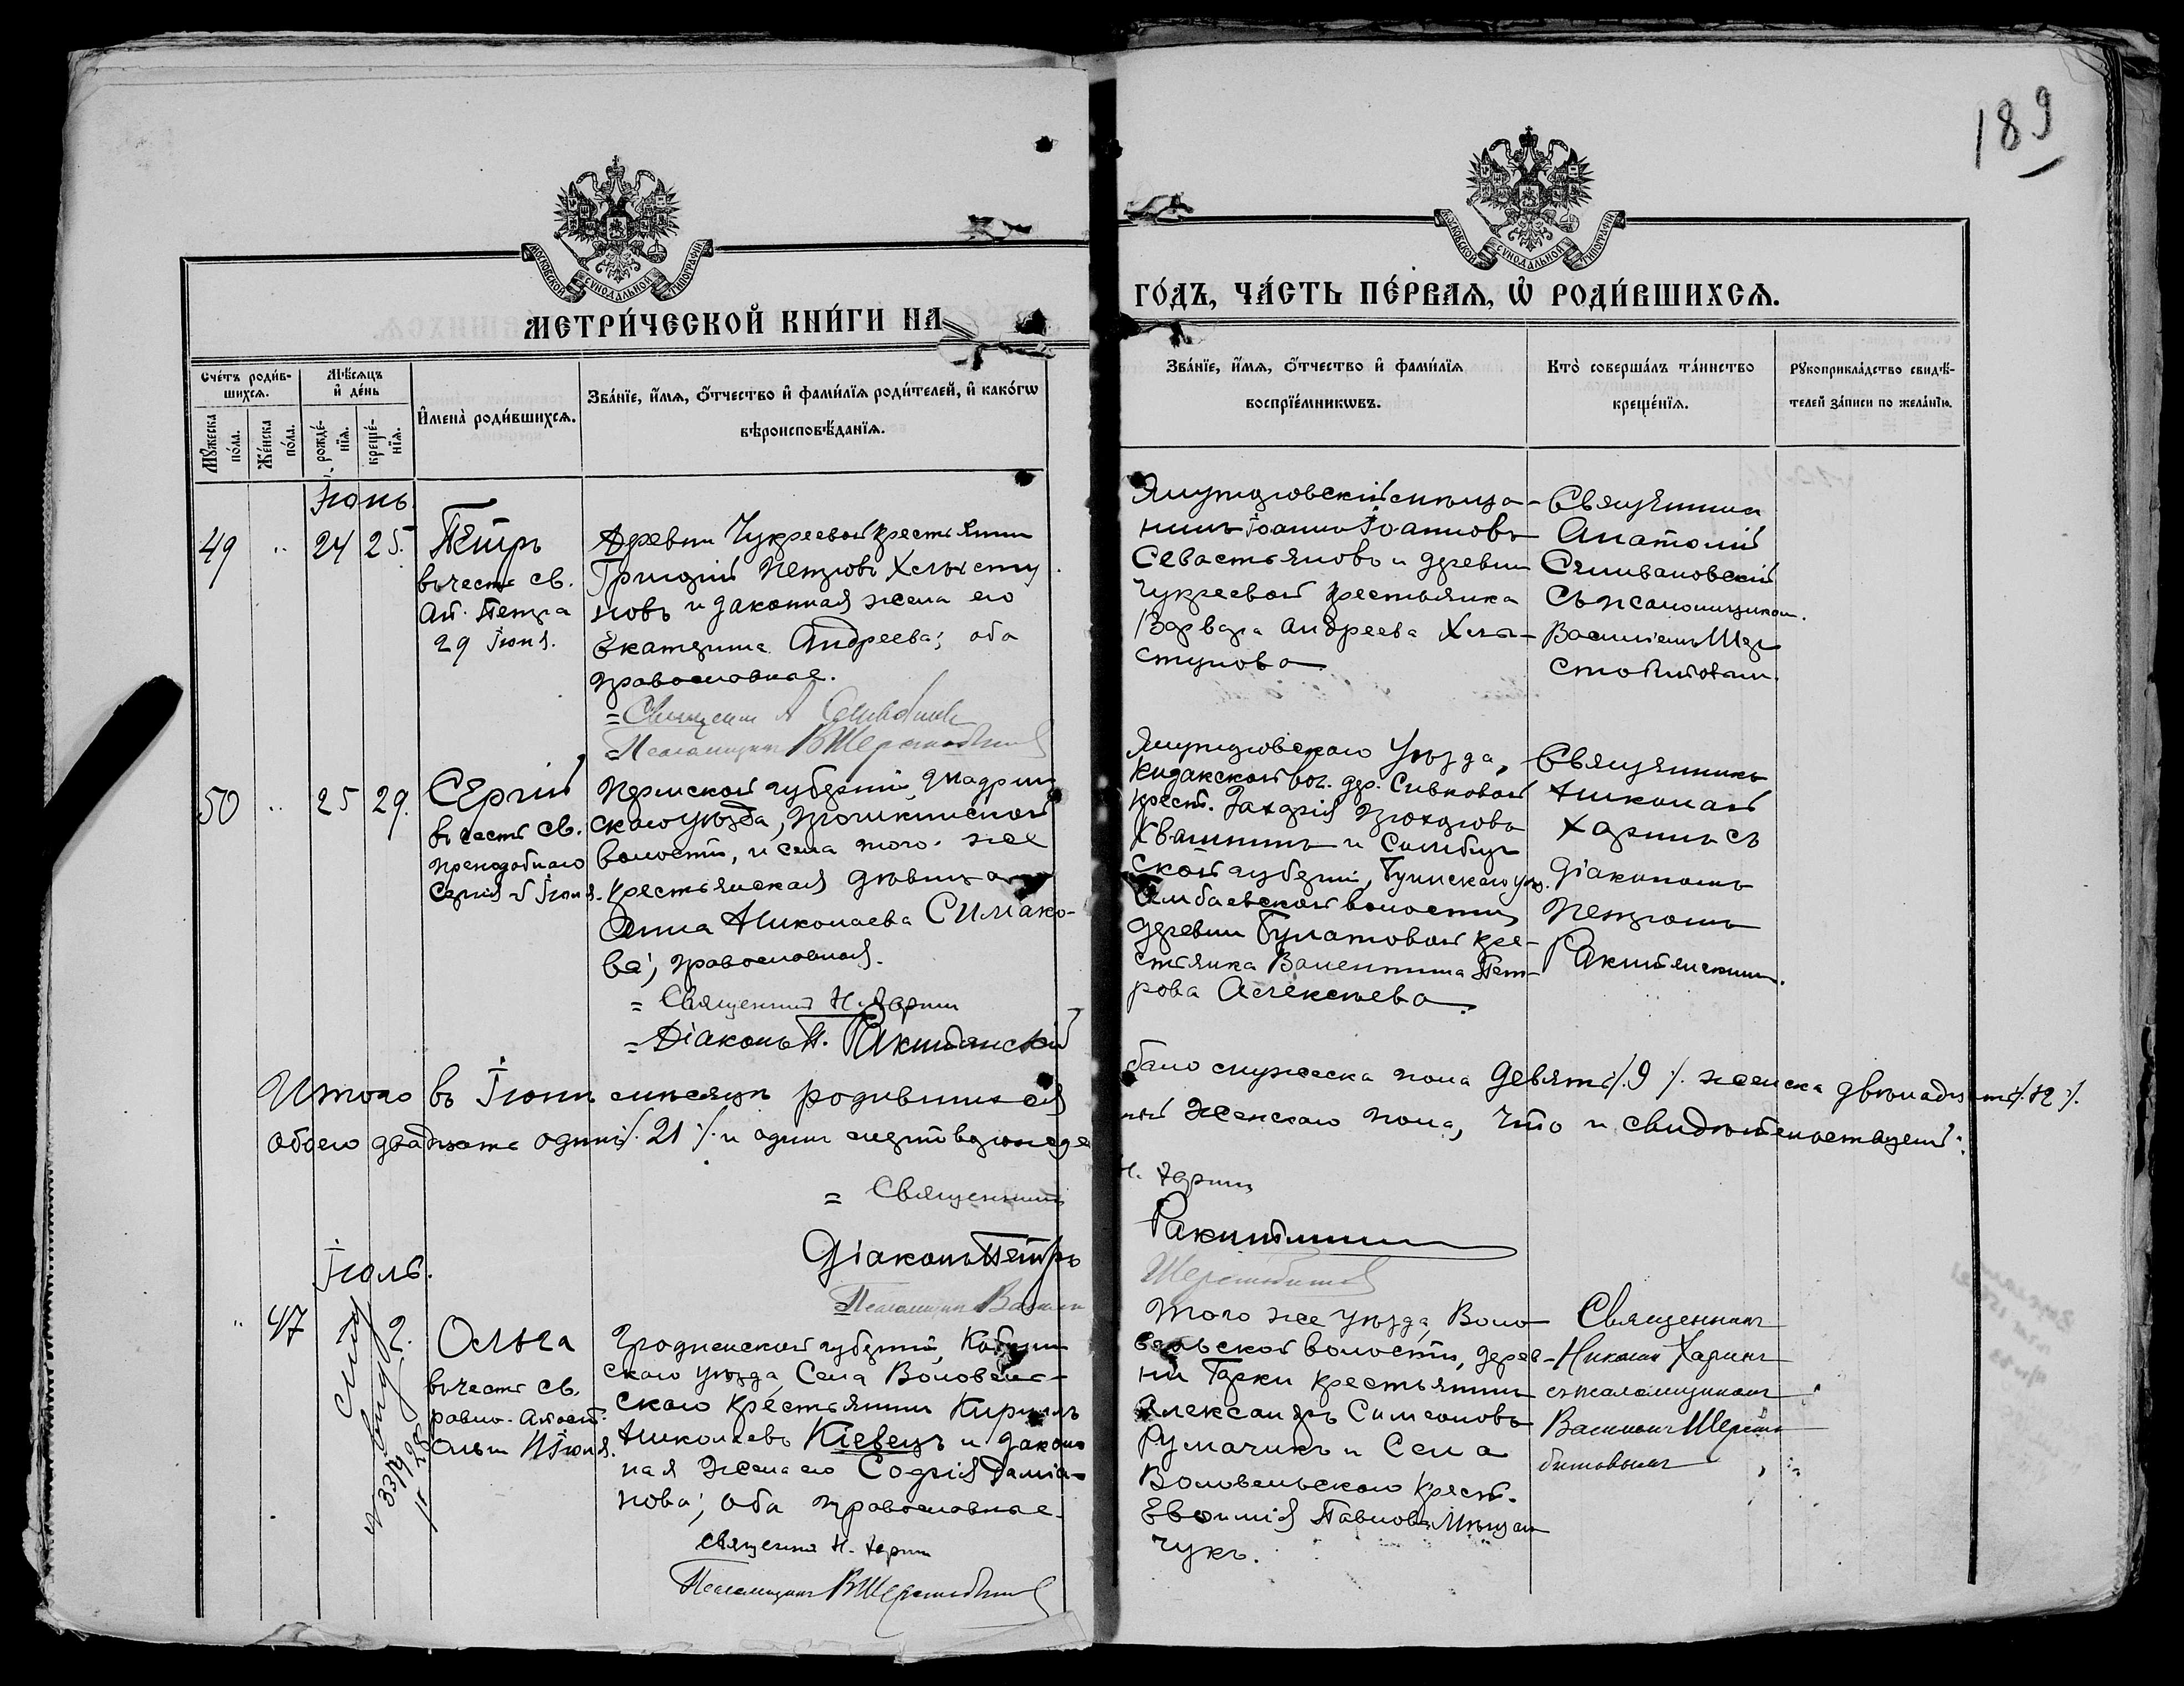 189
МЕТРИ́ЧЕСКОЙ КНИ́ГИ НА
ГО́ДЪ, ЧА́СТЬ ПЕ́РВАѦ, Ѡ҆ РОДИ́ВШИХСѦ.
МОСКОВСКОЙ СѴНОДАЛЬНОЙ ТИПОГРАФІИ
МОСКОВСКОЙ СѴНОДАЛЬНОЙ ТИПОГРАФІИ
Сче́тъ роди́в-
шихсѧ.
Мѣ́сѧцъ
и҆ де́нь
Мꙋ́жеска
по́ла.
Же́нска
по́ла.
рожде́-
нїѧ.
креще́-
нїѧ.
И҆мена̀ роди́вшихсѧ.
Зва́нїе, и҆́мѧ, ѻ҆́тчество и҆ фами́лїѧ роди́телей, и҆ како́гѡ
вѣроисповѣ́данїѧ.
Зва́нїе, и҆́мѧ, ѻ҆́тчество и҆ фами́лїѧ
воспрїе́мникѡвъ.
Кто̀ соверша́лъ та́инство
креще́нїѧ.
Рꙋкоприкла́дство свидѣ́-
телей за́писи по жела́нїю.
Іюнь.
49 " 24 25.
Петръ
въ честь св.
Ап. Петра
29 Іюня.
Деревни Чукреевой крестьянинъ
Григорій Петровъ Хлысту
новъ и законная жена его
Екатерина Андреева; оба
православные.
= Священникъ А
Псаломщикъ В Шерстобитовъ
Ялуторовскій мѣща-
нинъ Іоаннъ Іоанновъ
Севастьяновъ и деревни
Чукреевой крестьянка
Варвара Андреева Хлы-
стунова
Священникъ
Анатолій
Селивановскій
съ псаломщикомъ
Василіемъ Шер
стобитовымъ.
50 " 25 29.
Сергій
въ честь св.
преподобнаго
Сергія 5 Іюля.
Пермской губерніи, Шадрин
скаго уѣзда,
волости, и села того-же
крестьянская дѣвица
Анна Николаева Симако-
ва; православная.
= Священникъ Н. Харинъ
= Діаконъ П. Ракитянскій
Ялуторовскаго уѣзда,
Кизакской вол. дер. Сивковой
крест. Захарія
Квашнинъ и Симбир
ской губерніи, Буинскаго уѣз.
волости
деревни Булатовой кре-
стьянка Валентина Пет-
рова Алексѣева
Священникъ
Николай
Харинъ съ
Діакономъ
Петромъ
Ракитянскимъ.
Итого въ Іюнѣ мѣсяцѣ родившихся было мужеска пола девять /.9 /. женска двѣнадцать /.12 /.
обоего двадцать одинъ /. 21 /. и одинъ мертворожденный женскаго пола, что и свидѣтельствуемъ:
= Священникъ Н. Харинъ
Діаконъ Петръ Ракитянскій
Псаломщикъ Василій Шерстобитовъ
Іюль.
" 47 2.
Ольга
въ честь св.
равно-апост.
Ольги 11 Іюля.
Гродненской губерніи, Кобрин
скаго уѣзда, Села Воловель-
скаго крестьянинъ Кириллъ
Николаевъ Кіевецъ и закон
ная жена его Софія Даміа-
нова; оба православные.
Священникъ Н. Харинъ
Псаломщикъ В Шерстобитовъ
Того же уѣзда, Воло-
вельской волости, дерев-
ни Горки крестьянинъ
Александръ Симеоновъ
Румачикъ и Села
Воловельскаго крест.
Евфимія Павлова
чукъ.
Священникъ
Николай Харинъ
съ псаломщикомъ
Василіемъ Шерсто
битовымъ